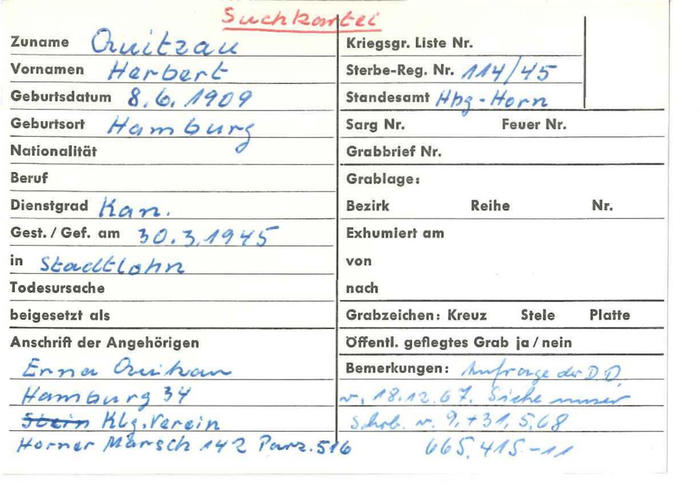 Suchkartei
Zuname Quitzau
Vornamen Herbert
Geburtsdatum 8.6.1909
Geburtsort Hamburg
Nationalität
Beruf
Dienstgrad Kan.
Gest./Gef. am 30.3.1945
in Stadtlohn
Todesursache
beigesetzt als
Anschrift der Angehörigen
Erna Quitzau
Hamburg 34
Stein Klg. Verein
Horner Marsch 142 Parz. 516
Kriegsgr. Liste Nr.
Sterbe-Reg. Nr. 114/45
Standesamt Hbg-Horn
Sarg Nr. Feuer Nr.
Grabbrief Nr.
Grablage:
Bezirk Reihe Nr.
Exhumiert am
von
nach
Grabzeichen: Kreuz Stele Platte
Öffentl. geflegtes Grab ja/nein
Bemerkungen: Anfrage der D.D.
v. 18.12.67. Siehe unser
Schrb. v. 9.+31.5.68
665.415-11